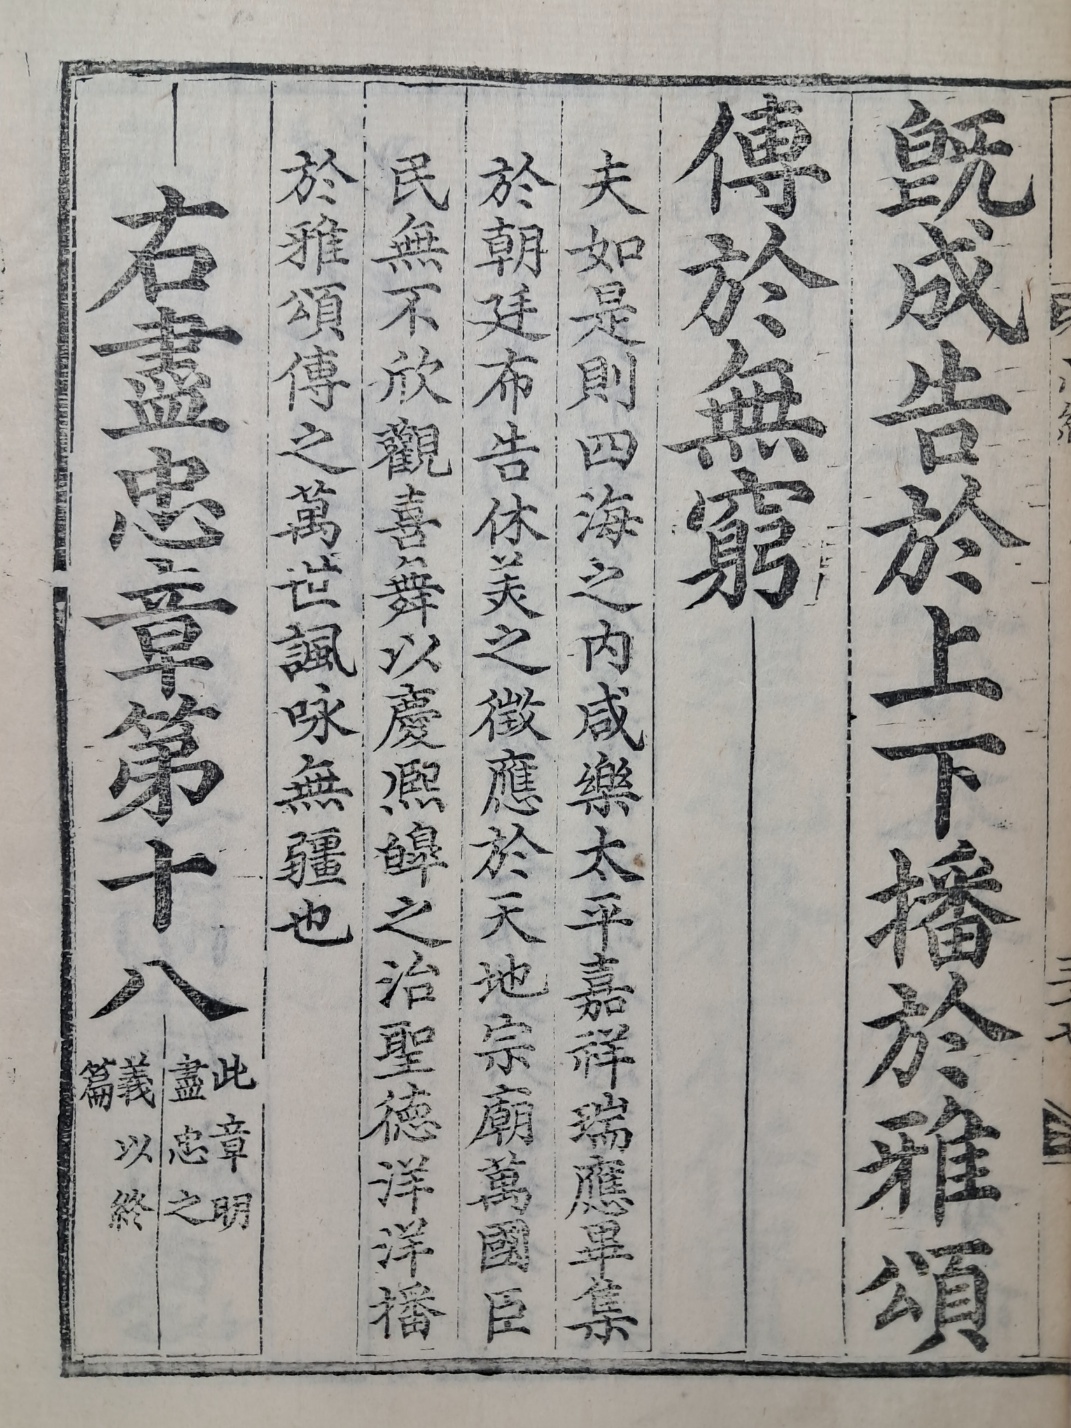 旣成告於上下播於雅頌
傳於無窮
夫如是則四海之内咸樂太平嘉祥瑞應畢集
於朝廷布告休美之徵應於天地宗廟萬國臣
民無不欣觀喜舞以慶熈皥之治聖德洋洋播
於雅頌傳之萬世諷咏無疆也
右盡忠章第十八
此章明
盡忠之
義以終
篇